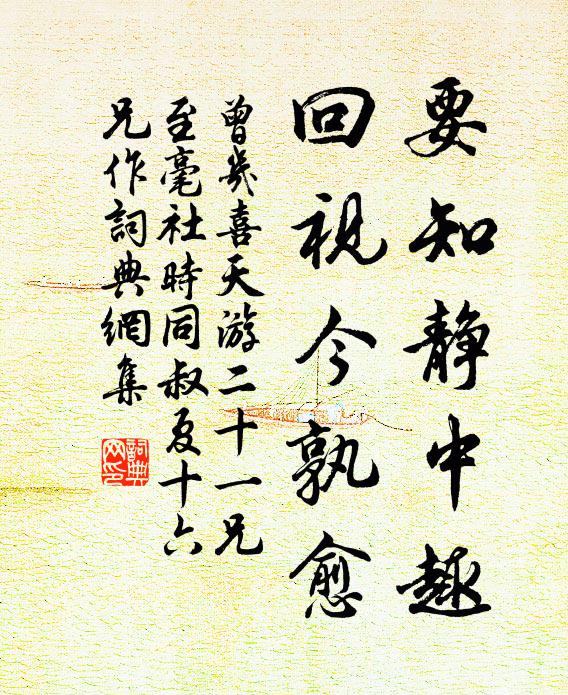 要知静中趣
回視今孰愈
曾幾喜天游二十一兄
至毫社時同叔夏十六
兄作詞典網集
詞典網印